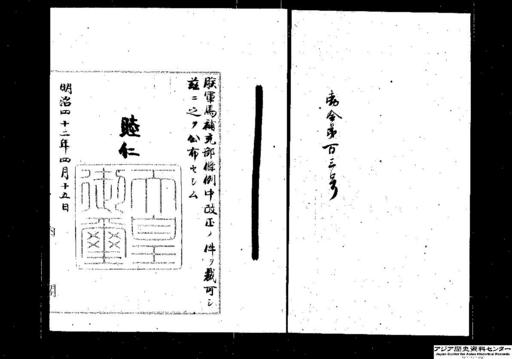 勅令第百三号
朕軍馬補充部條例中改正ノ件ヲ裁可シ
茲ニ之ヲ公布セシム
睦仁
天皇御璽
明治四十二年四月十五日
内閣
アジア歴史資料センター
Japan Center for Asian Historical Records